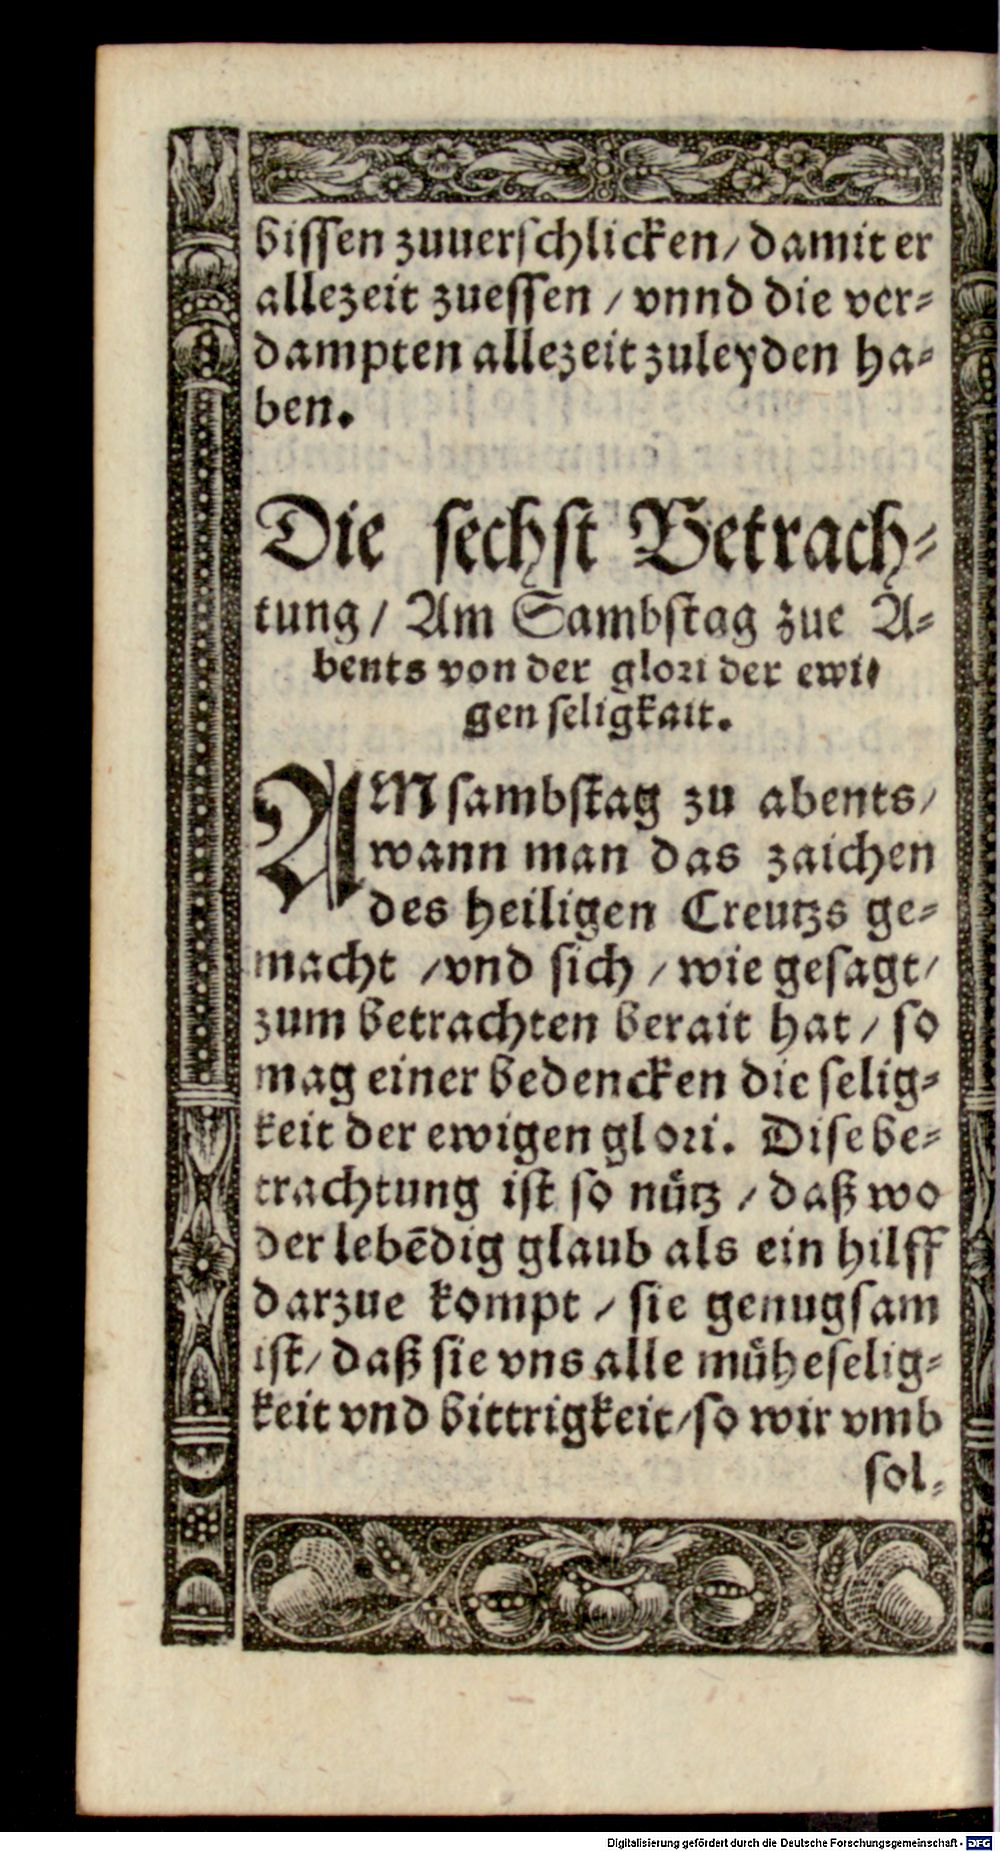 bissen zuuerschlicken/ damit er
allezeit zuessen / vnnd die ver⸗
dampten allezeit zuleyden ha⸗
ben.
Die sechst Betrach⸗
tung/ Am Sambstag zue A⸗
bents von der glori der ewi⸗
gen seligkait.
AM sambstag zu abents/
wann man das zaichen
des heiligen Creutzs ge⸗
macht /vnd sich / wie gesagt/
zum betrachten berait hat / so
mag einer bedencken die selig⸗
keit der ewigen glori. Dise be⸗
trachtung ist so nuͤtz / daß wo
der lebēdig glaub als ein hilff
darzue kompt / sie genugsam
ist/ daß sie vns alle muͤheselig⸗
keit vnd bittrigkeit/so wir vmb
sol⸗
Digitalisierung gefördert durch die Deutsche Forschungsgemeinschaft - DFG